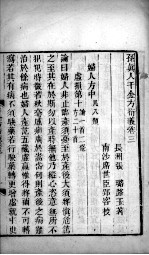 孫真人千金方衍義卷三
長洲張 璐路玉著
南沙席世臣郢客校
婦人方中 凡八類
虛損第十 論一首 方二十首
論曰凡婦人非止臨產須憂至於產後大須將慎危篤
之至其在於斯勿以產時無他乃縱心恣意無所不
犯犯時微若秋毫感病廣於嵩岱何則產後之病難
治於餘病也婦人產訖五臟虛羸惟得將補不可轉
瀉若其有病不須駛藥若行駛藥轉更增虛就中更